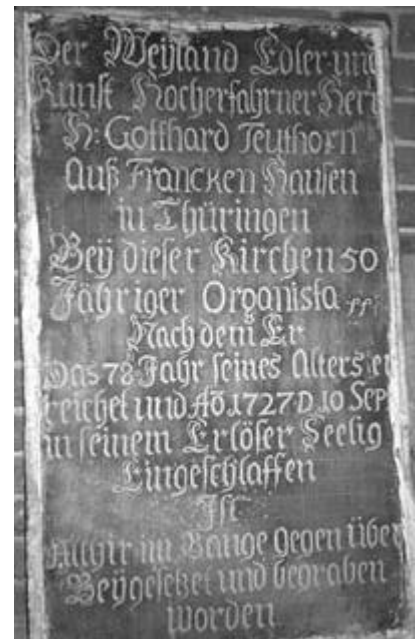 Der Weyland Edler und
Kunst Hocherfahrner Herr
H: Gotthard Teuthorn
Auß Francken Hausen
in Thüringen
Beÿ dieser Kirchen 50
Jähriger Organista
Nach dem Er
Das 78 Jahr seines Alters er
reichet und Aō. 1727 D. 10 Sep
in seinem Erlöser Seelig
Eingeschlaffen
Ist
Allhir im Gange gegen über
Beÿgesetzet und begraben
worden